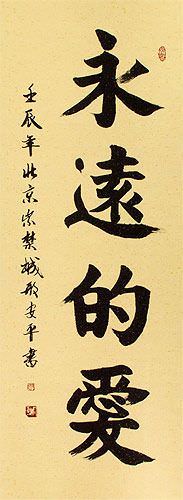 永遠的愛
壬辰年北京宋樊城邢安平書